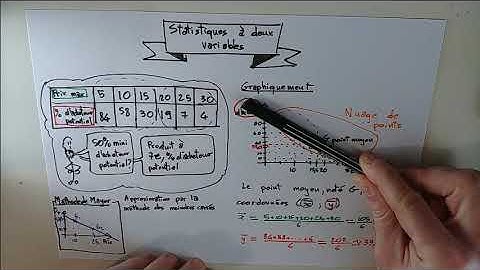 Statistiques à deux
variables
Prix max 5 10 15 20 25 30
% d'acheteur
potentiel 84 58 30 19 7 4
50% mini
d'acheteur
potentiel?
Produit à
7€, % d'acheteur
potentiel
Méthode de Mayer
Approximation par la
méthode des moindres carrés
Graphiquement
Nuage de
points
point moyen
Le point moyen, noté G,
coordonnées (x̄, ȳ)
x̄ = 5+10+15+20+25+30 / 6 = 105 / 6
ȳ = 84+58+...+4 / 6 = 202 / 6